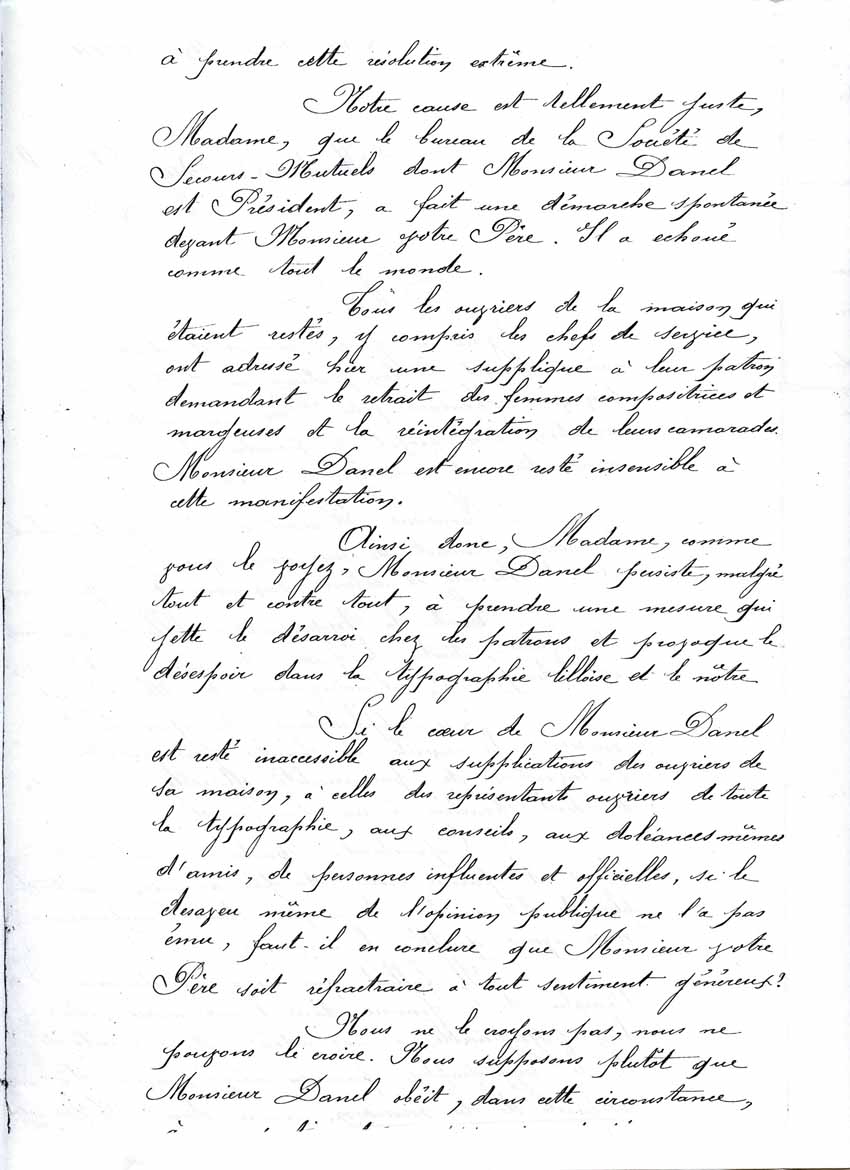 à prendre cette résolution extrême.
Notre cause est tellement juste,
Madame, que le bureau de la Société de
Secours-Mutuels dont Monsieur Danel
est Président, a fait une démarche spontanée
devant Monsieur votre Père. Il a echoué
comme tout le monde.
Tous les ouvriers de la maison qui
étaient restés, y compris les chefs de service,
ont adressé hier une supplique à leur patron
demandant le retrait des femmes compositrices et
margeuses et la réintégration de leurs camarades.
Monsieur Danel est encore resté insensible à
cette manifestation.
Ainsi donc, Madame, comme
vous le voyez, Monsieur Danel persiste, malgré
tout et contre tout, à prendre une mesure qui
jette le désarroi chez les patrons et provoque le
désespoir dans la typographie lilloise et le nôtre
Si le cœur de Monsieur Danel
est resté inaccessible aux supplications des ouvriers de
sa maison, à celles des représentants ouvriers de toute
la typographie, aux conseils, aux doléances mêmes
d'amis, de personnes influentes et officielles, si le
desaveu même de l'opinion publique ne l'a pas
ému, faut-il en conclure que Monsieur votre
Père soit réfractaire à tout sentiment généreux?
Nous ne le croyons pas, nous ne
pouvons le croire. Nous supposons plutôt que
Monsieur Danel obéit, dans cette circonstance,